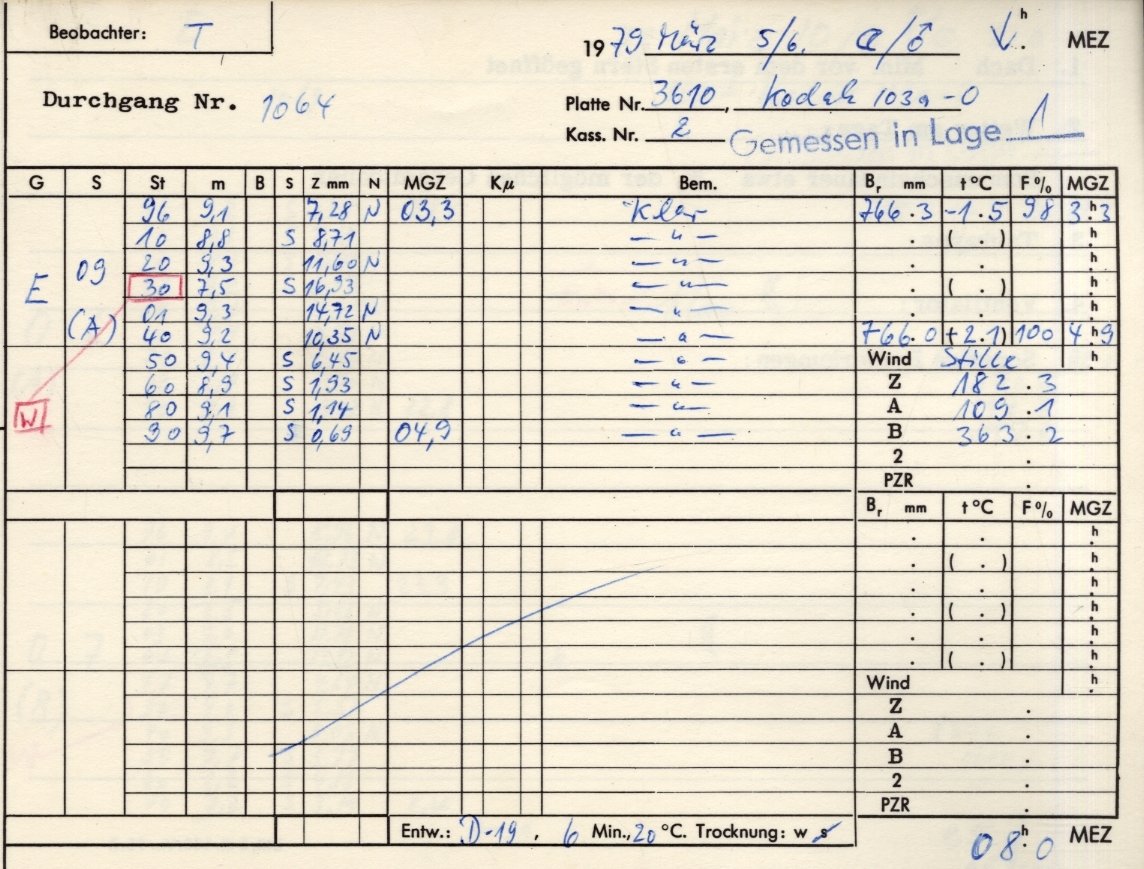 Beobachter: T
1979 März 5/6. ☾/♂ h MEZ
Durchgang Nr. 1064
Platte Nr. 3610, Kodak 103a-O
Kass. Nr. 2 Gemessen in Lage 1
G S St m B S Z mm N MGZ Kμ Bem. Br mm t°C F% MGZ
96 9,1 7,28 N 03,3 Klar 766.3 -1.5 98 3.h3
10 8,8 S 8,71 — " — . ( . ) h
20 9,3 11,60 N — " — . . h
E 09 30 7,5 S 16,93 — " — . ( . ) h
(A) 01 9,3 14,72 N — " — . . h
40 9,2 10,35 N — " — 766.0 (+2.1) 100 4.h9
50 9,4 S 6,45 — " — Wind Stille h
60 8,9 S 1,93 — " — Z 182.3
W 80 9,1 S 1,14 — " — A 109.1
90 9,7 S 0,69 04,9 — " — B 363.2
2 .
PZR .
Br mm t°C F% MGZ
. . h
. ( . ) h
. . h
. ( . ) h
. . h
. ( . ) h
Wind h
Z .
A .
B .
2 .
PZR .
Entw.: D-19, 6 Min., 20 °C. Trocknung: w s
08.h0 MEZ